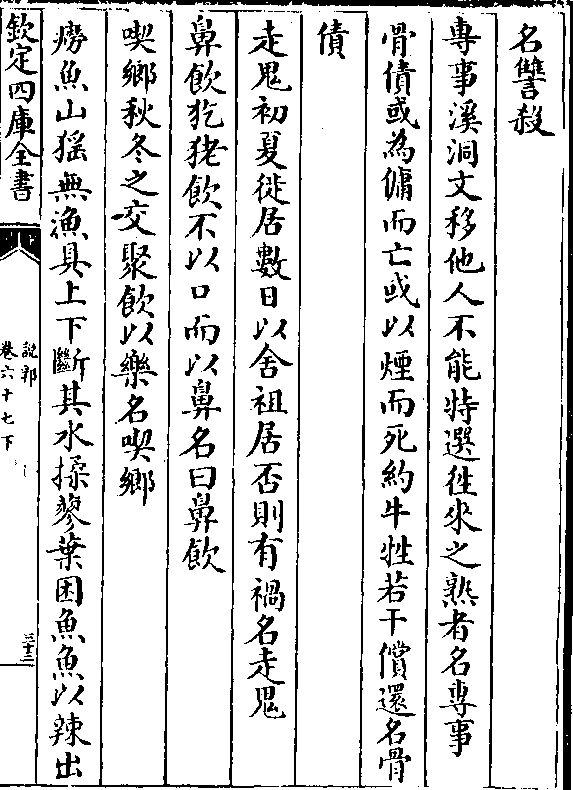 名讐殺
専事溪洞文移他人不能特選徃來之熟者名専事
骨債或為傭而亡或以煙而死約牛牲若干償還名骨
債
走鬼初夏徙居數日以舍祖居否則有禍名走鬼
鼻飲犵狫飲不以口而以鼻名曰鼻飲
喫鄉秋冬之交聚飲以樂名喫鄉
癆魚山猺無漁具上下斷其水揉蓼葉困魚魚以辣出
欽定四庫全書
說郛
卷六十七下
三十三